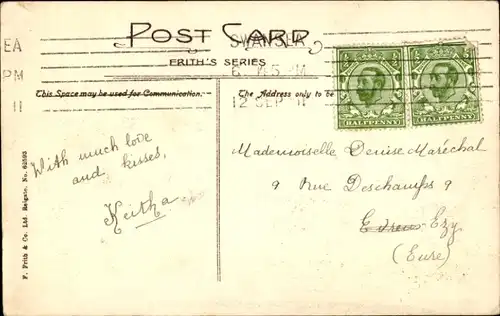 POST CARD
FRITH'S SERIES
EA
PM
11
SWANSEA
12 SEP 11
This Space may be used for Communication.
The Address only to be
HALFPENNY
HALFPENNY
With much love
and kisses,
Keitha
Mademoiselle Denise Maréchal
9 Rue Deschamps 9
Evreux Ezy
(Eure)
F. Frith & Co. Ltd. Reigate. No. 62593